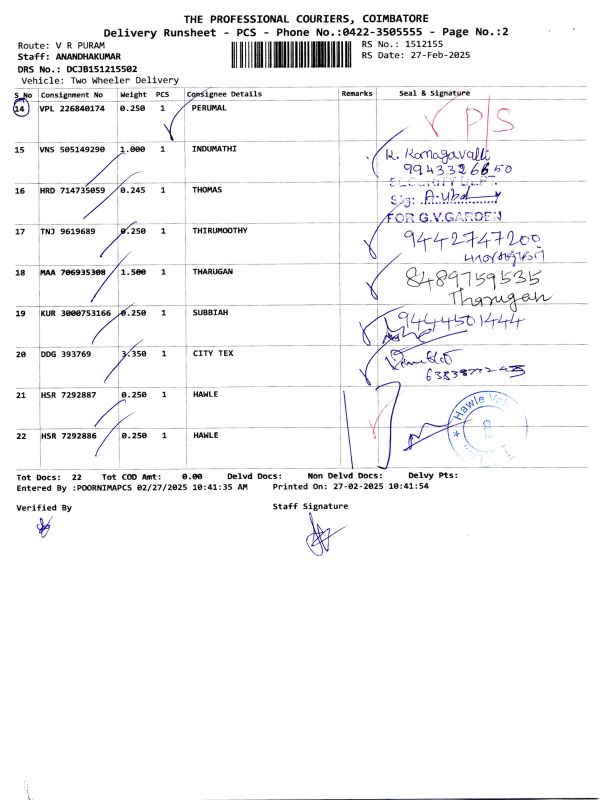 THE PROFESSIONAL COURIERS, COIMBATORE
Delivery Runsheet - PCS - Phone No.:0422-3505555 - Page No.:2
Route: V R PURAM
RS No.: 1512155
Staff: ANANDHAKUMAR
RS Date: 27-Feb-2025
DRS No.: DCJB151215502
Vehicle: Two Wheeler Delivery
S_No Consignment No Weight PCS Consignee Details Remarks Seal & Signature
14 VPL 226840174 0.250 1 PERUMAL P/S
15 VNS 505149290 1.000 1 INDUMATHI K. Kanagavalli
9943326650
SECURITY DEPT.
16 HRD 714735059 0.245 1 THOMAS Sig:
FOR G.V.GARDEN
17 TNJ 9619689 0.250 1 THIRUMOOTHY 9442747200
18 MAA 706935308 1.500 1 THARUGAN 8489759535
Tharugan
19 KUR 3000753166 0.250 1 SUBBIAH 9444501444
20 DDG 393769 3.350 1 CITY TEX
21 HSR 7292887 0.250 1 HAWLE
Hawle
22 HSR 7292886 0.250 1 HAWLE
Tot Docs: 22 Tot COD Amt: 0.00 Delvd Docs: Non Delvd Docs: Delvy Pts:
Entered By :POORNIMAPCS 02/27/2025 10:41:35 AM Printed On: 27-02-2025 10:41:54
Verified By Staff Signature